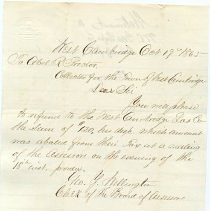 West Cambridge Oct 19th 1865
To Abel R. Proctor
Collector for the Town of West Cambridge
Dear Sir
You will please
to refund to the West Cambridge Gas Co
the Sum of which amount
was abated from their Tax at a meeting
of the Assessors on the evening of the
15th inst.
Geo. Y. Wellington
Clerk of the Board of Assessors